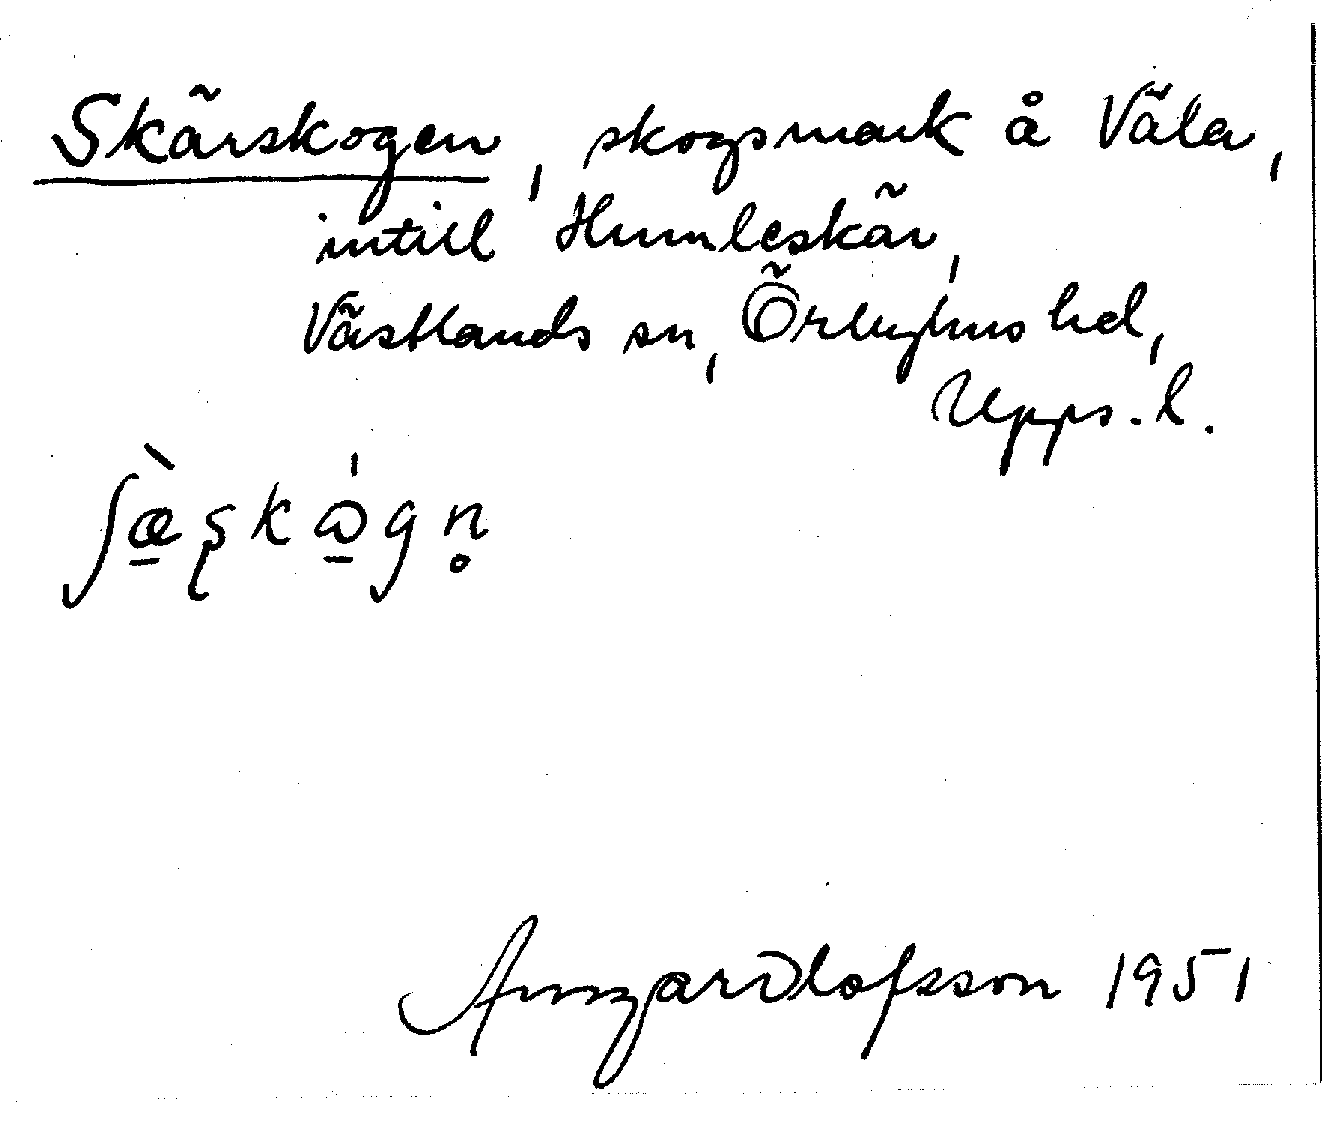 Skärskogen, skogsmark å Väla,
intill Humleskär,
Västlands sn, Örbyhus hd,
Upps. l.
ʃæ̠̀ʂkɷ̠́gn̥
Olofsson 1951